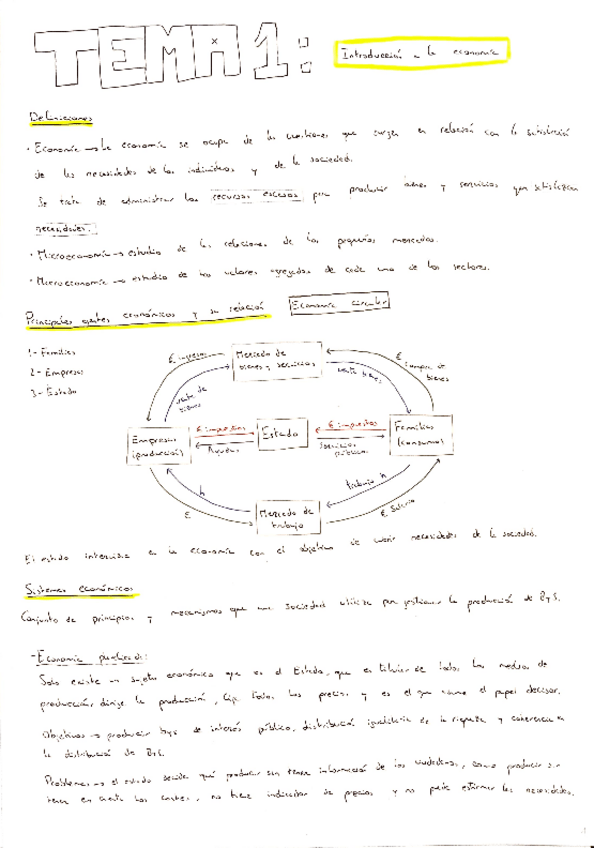 TEMA 1:
Introducción a la economía
Definiciones
· Economía → La economía se ocupa de las cuestiones que surgen en relación con la satisfacción
de las necesidades de los individuos y de la sociedad.
Se trata de administrar los recursos escasos para producir bienes y servicios que satisfazcan
necesidades.
· Microeconomía → estudio de las relaciones de los pequeños mercados.
· Macroeconomía → estudio de los valores agregados de cada uno de los sectores.
Principales agentes económicos y su relación
Economía circular
1- Familias
2- Empresas
3- Estado
€ ingresos
Mercado de
bienes y servicios
€ compra de
bienes
venta de
bienes
venta bienes
Empresas
(producción)
€ impuestos
Ayudas
Estado
€ impuestos
servicios
públicos
Familias
(consumo)
h
€
Mercado de
trabajo
trabajo h
€ Salario
El estado interviene en la economía con el objetivo de cubrir necesidades de la sociedad.
Sistemas económicos
Conjunto de principios y mecanismos que una sociedad utiliza para gestionar la producción de B y S.
- Economía planificada:
Solo existe un sujeto económico que es el Estado, que es titular de todos los medios de
producción, dirige la producción, fija todos los precios y es el que asume el papel decisor.
Objetivos → producir bys de interés público, distribución igualitaria de la riqueza y coherencia en
la distribución de ByS.
Problemas → el estado decide qué producir sin tener información de los ciudadanos, como producir sin
tener en cuenta los costes, no tiene indicador de precios y no puede estimar las necesidades.